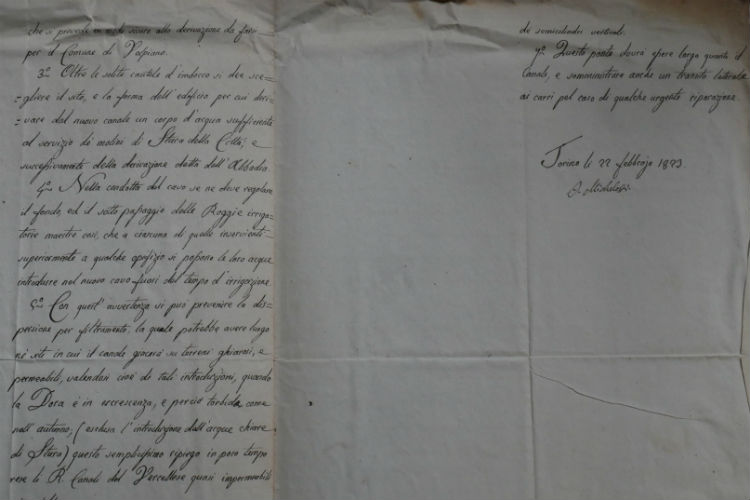 che si provede in modo sicuro alla derivazione da farsi
per il Comune di Volpiano.
3.o Oltre le solite cautele d'imbocco si dee sce=
=gliere il sito, e la forma dell'edificio per cui deri=
=vare dal nuovo canale un corpo d'acqua sufficiente
al servizio dei molini di Stura della Città; e
successivamente della derivazione detta dell'Abbadia.
4.o Nella condotta del cavo se ne deve regolare
il fondo, ed il sotto passaggio delle Roggie irriga=
torie maestre così, che a ciascuna di quelle inserviente
superiormente a qualche opifizio si possano le loro acque
introdurre nel nuovo cavo fuori del tempo d'irrigazione
5.o Con quest'avvertenza si può prevenire la dis=
persione per filtramento, la quale potrebbe avere luogo
ne' siti in cui il canale giacerà su terreni ghiarosi, e
permeabili, valendosi cioè di tali introduzioni, quando
la Dora è in escrescenza, e perciò torbida come
nell'autunno; (esclusa l'introduzione dell'acque chiare
di Stura) questo semplicissimo ripiego in poco tempo
rese li R. Canali del Vercellese quasi impermeabili
de' semicilindri verticali.
7.o Questo ponte dovrà essere largo quanto il
Canale, e somministrare anche un transito laterale
ai carri pel caso di qualche urgente riparazione.
Torino li 22 febbrajo 1823